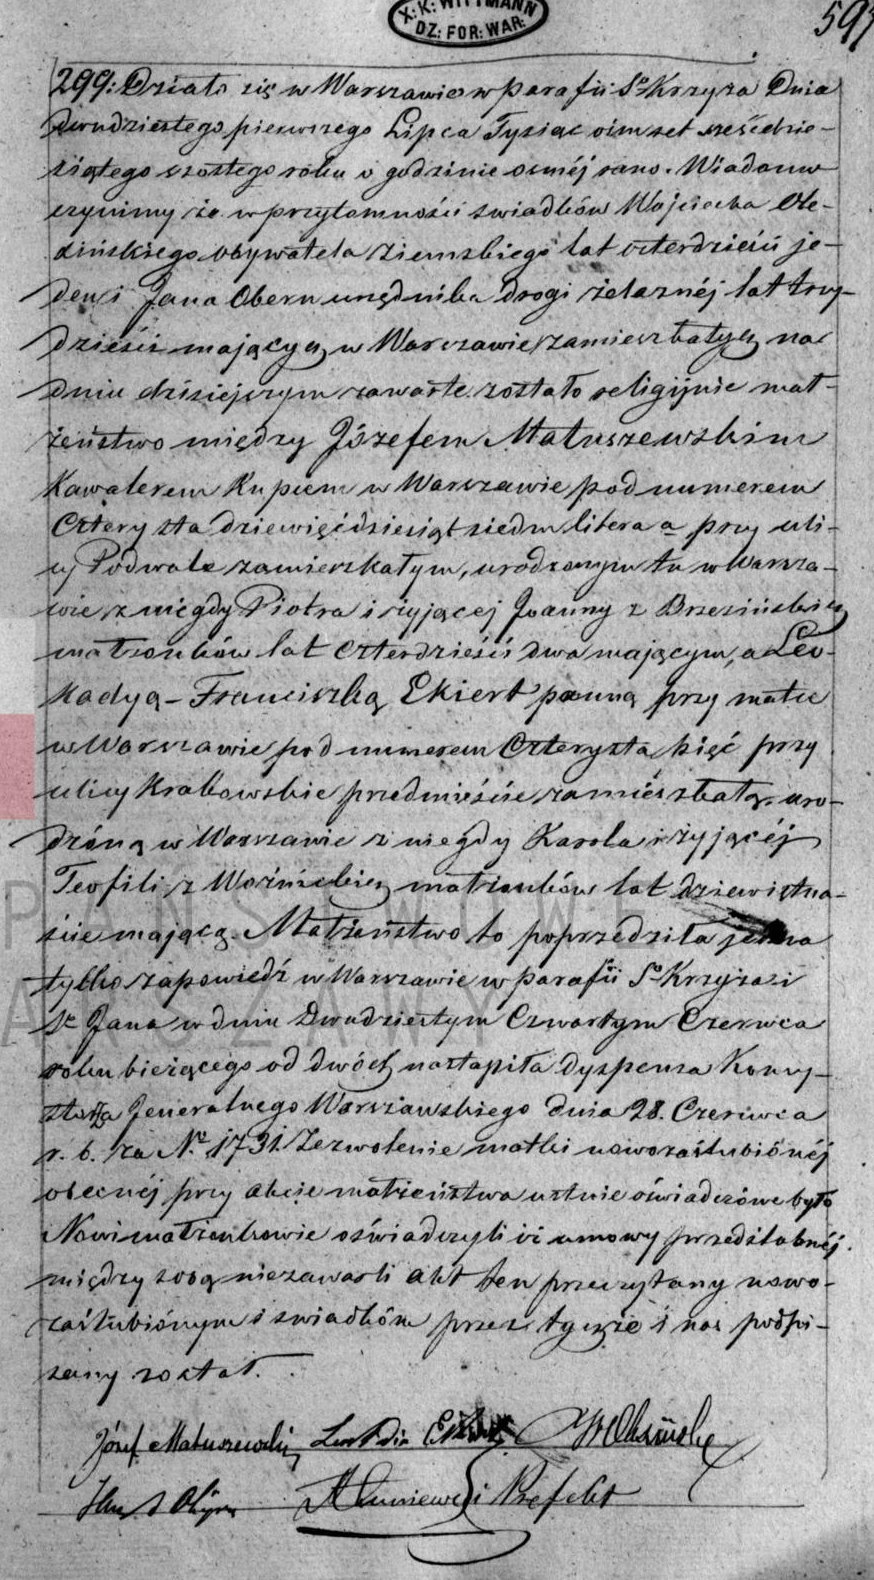 X: K: WITTMANN
DZ: FOR: WAR:
597
299: Działo się w Warszawie w parafii Sgo Krzyża Dnia
dwudziestego pierwszego Lipca Tysiąc ośmset sześćdzie-
siątego szóstego roku o godzinie ósméj rano. Wiadomo
czynimy że w przytomności świadków Wojciecha Ole-
dzińskiego obywatela ziemskiego lat czterdzieści je-
den i Jana Obern urzędnika drogi żelaznéj lat trzy-
dzieści mających w Warszawie zamieszkałych na
dniu dzisiejszym zawarte zostało religijnie mał-
żeństwo między Józefem Matuszewskim
Kawalerem Kupcem w Warszawie pod numerem
Cztery sta dziewięćdziesiąt siedm litera a przy uli-
cy Podwale zamieszkałym, urodzonym tu w Warsza-
wie z niegdy Piotra i żyjącej Joanny z Brzezińskich
małżonków lat Czterdzieści dwa mającym, a Leo-
kadyą - Franciszką Ekiert panną przy matce
w Warszawie pod numerem Czterysta pięć przy
ulicy Krakowskie przedmieście zamieszkałą, uro-
dzóną w Warszawie z niegdy Karola i żyjącéj
Teofili z małżonków lat dziewiętna-
ście mającą. Małżeństwo to poprzedziła jedna
tylko zapowiedź w Warszawie w parafii Sgo Krzyża i
St Jana w dniu Dwudziestym Czwartym Czerwca
roku bieżącego od dwóch nastąpiła dyspensa Konsy-
storza Jeneralnego Warszawskiego dnia 28. Czerwca
r. b. za No 1731. Zezwolenie matki nowozaślubionéj
obecnéj przy akcie małżeństwa ustnie oświadczóne było
Nowi małżonkowie oświadczyli iż umowy przedślubnéj
między sobą niezawarli akt ten przeczytany nowo-
zaślubiónym i świadkóm przez tychże i nas podpi-
sany został.
Józef Matuszewski Leokadia Ekiert
Prefekt
PAŃSTWOWE
WARSZAWY